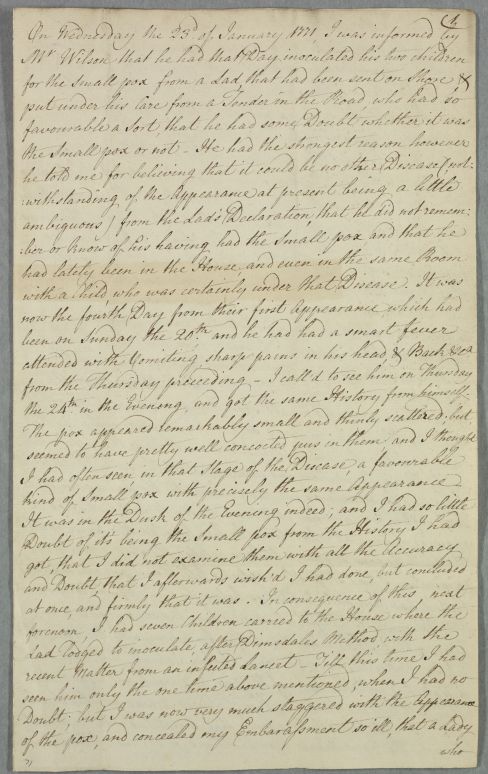 1.
On Wednesday the 23d of January 1771, I was informed by
Mr Wilson that he had that Day inoculated his two children
for the Small pox from a Lad, that had been sent on Shore &
put under his Care from a Tender in the Road, who had so
favourable a Sort, that he had some Doubt whether it was
the Small pox or not - He had the strongest reason however
he told me for believing that it could be no other Disease (not:
withstanding of the Appearance at present being a little
ambiguous) from the Lad's Declaration, that he did not remem:
ber or know of his having had the Small pox, and that he
had lately been in the House, and even in the same Room
with a Child who was certainly under that Disease. It was
now the fourth Day from their first Appearance which had
been on Sunday the 20th and he had had a smart fever
attended with Vomiting sharp pains in his head, & Back &ca
from the Thursday preceeding - I call'd to see him on Thursday
the 24th in the Evening, and got the same History from himself.
The pox appeared remarkably small and thinly scattered, but
seemed to have pretty well concocted pus in them and I thought
I had often seen in that Stage of the Disease, a favourable
kind of Small pox with precisely the same Appearance
It was in the Dusk of the Evening indeed; and I had so little
Doubt of its being the Small pox from the History I had
got, that I did not examine them with all the Accuracy
and Doubt, that I afterwards wish'd I had done, but concluded
at once, and firmly that it was. In consequence of this, next
forenoon, I had seven Children carried to the House where the
Lad lodged to inoculate, after Dimsdales Method, with the
recent Matter from an infected Lancet - Till this time I had
seen him only the one time above mentioned, when I had no
Doubt; but I was now very much staggered with the Appearance
of the pox, and concealed my Embarassment so ill, that a Lady
who